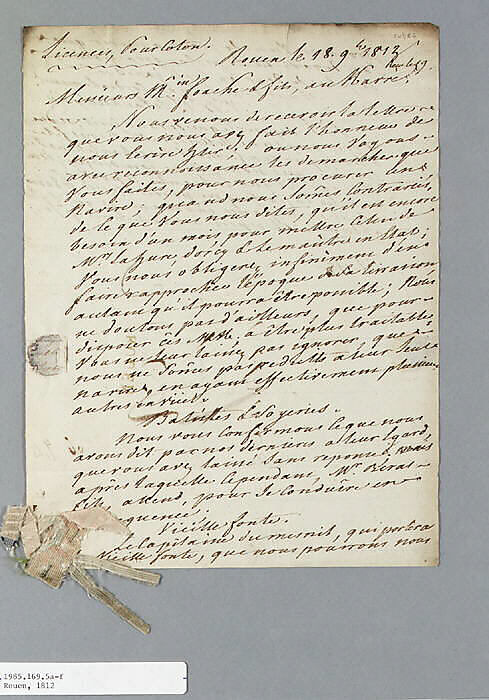 Licences, Pour Coton.
Rouen le 18. 9bre 1812
Messieurs Mtin foache & fils, au Havre.
Nous venons de recevoir la lettre
que vous nous avez fait l'honneur de
nous écrire hier; où nous voyons
avec reconnaissance les demarches que
vous faites, pour nous procurer un
Navire; quand nous sommes contrariés,
de ce que vous nous dites, qu'il est encore
besoin d'un mois pour mettre celui de
Mrs. dorey & Le maitre en état;
Vous nous obligerez infiniment d'en
faire rapprocher l'époque de la livraison
autant qu'il pourra être possible; Nous
ne doutons pas d'ailleurs, que pour
disposer ces Mrs. à être plus traitables
Vous ne leur laissez pas ignorer, que
nous ne sommes pas reduits à leur seul
navire, en ayant effectivement plusieurs
autres en vue.
Batistes & Soyeries.
Nous vous confirmons ce que nous
avons dit par nos derniers à leur égard,
que vous avez laissé sans reponse, &
après laquelle cependant, Mr.
fils attend, pour se conduire en
sequence.
Vieille fonte.
Le Capitaine dumesnil, qui portera
vieille fonte, que nous pourrons nous
1985.169.5a-f
Rouen, 1812